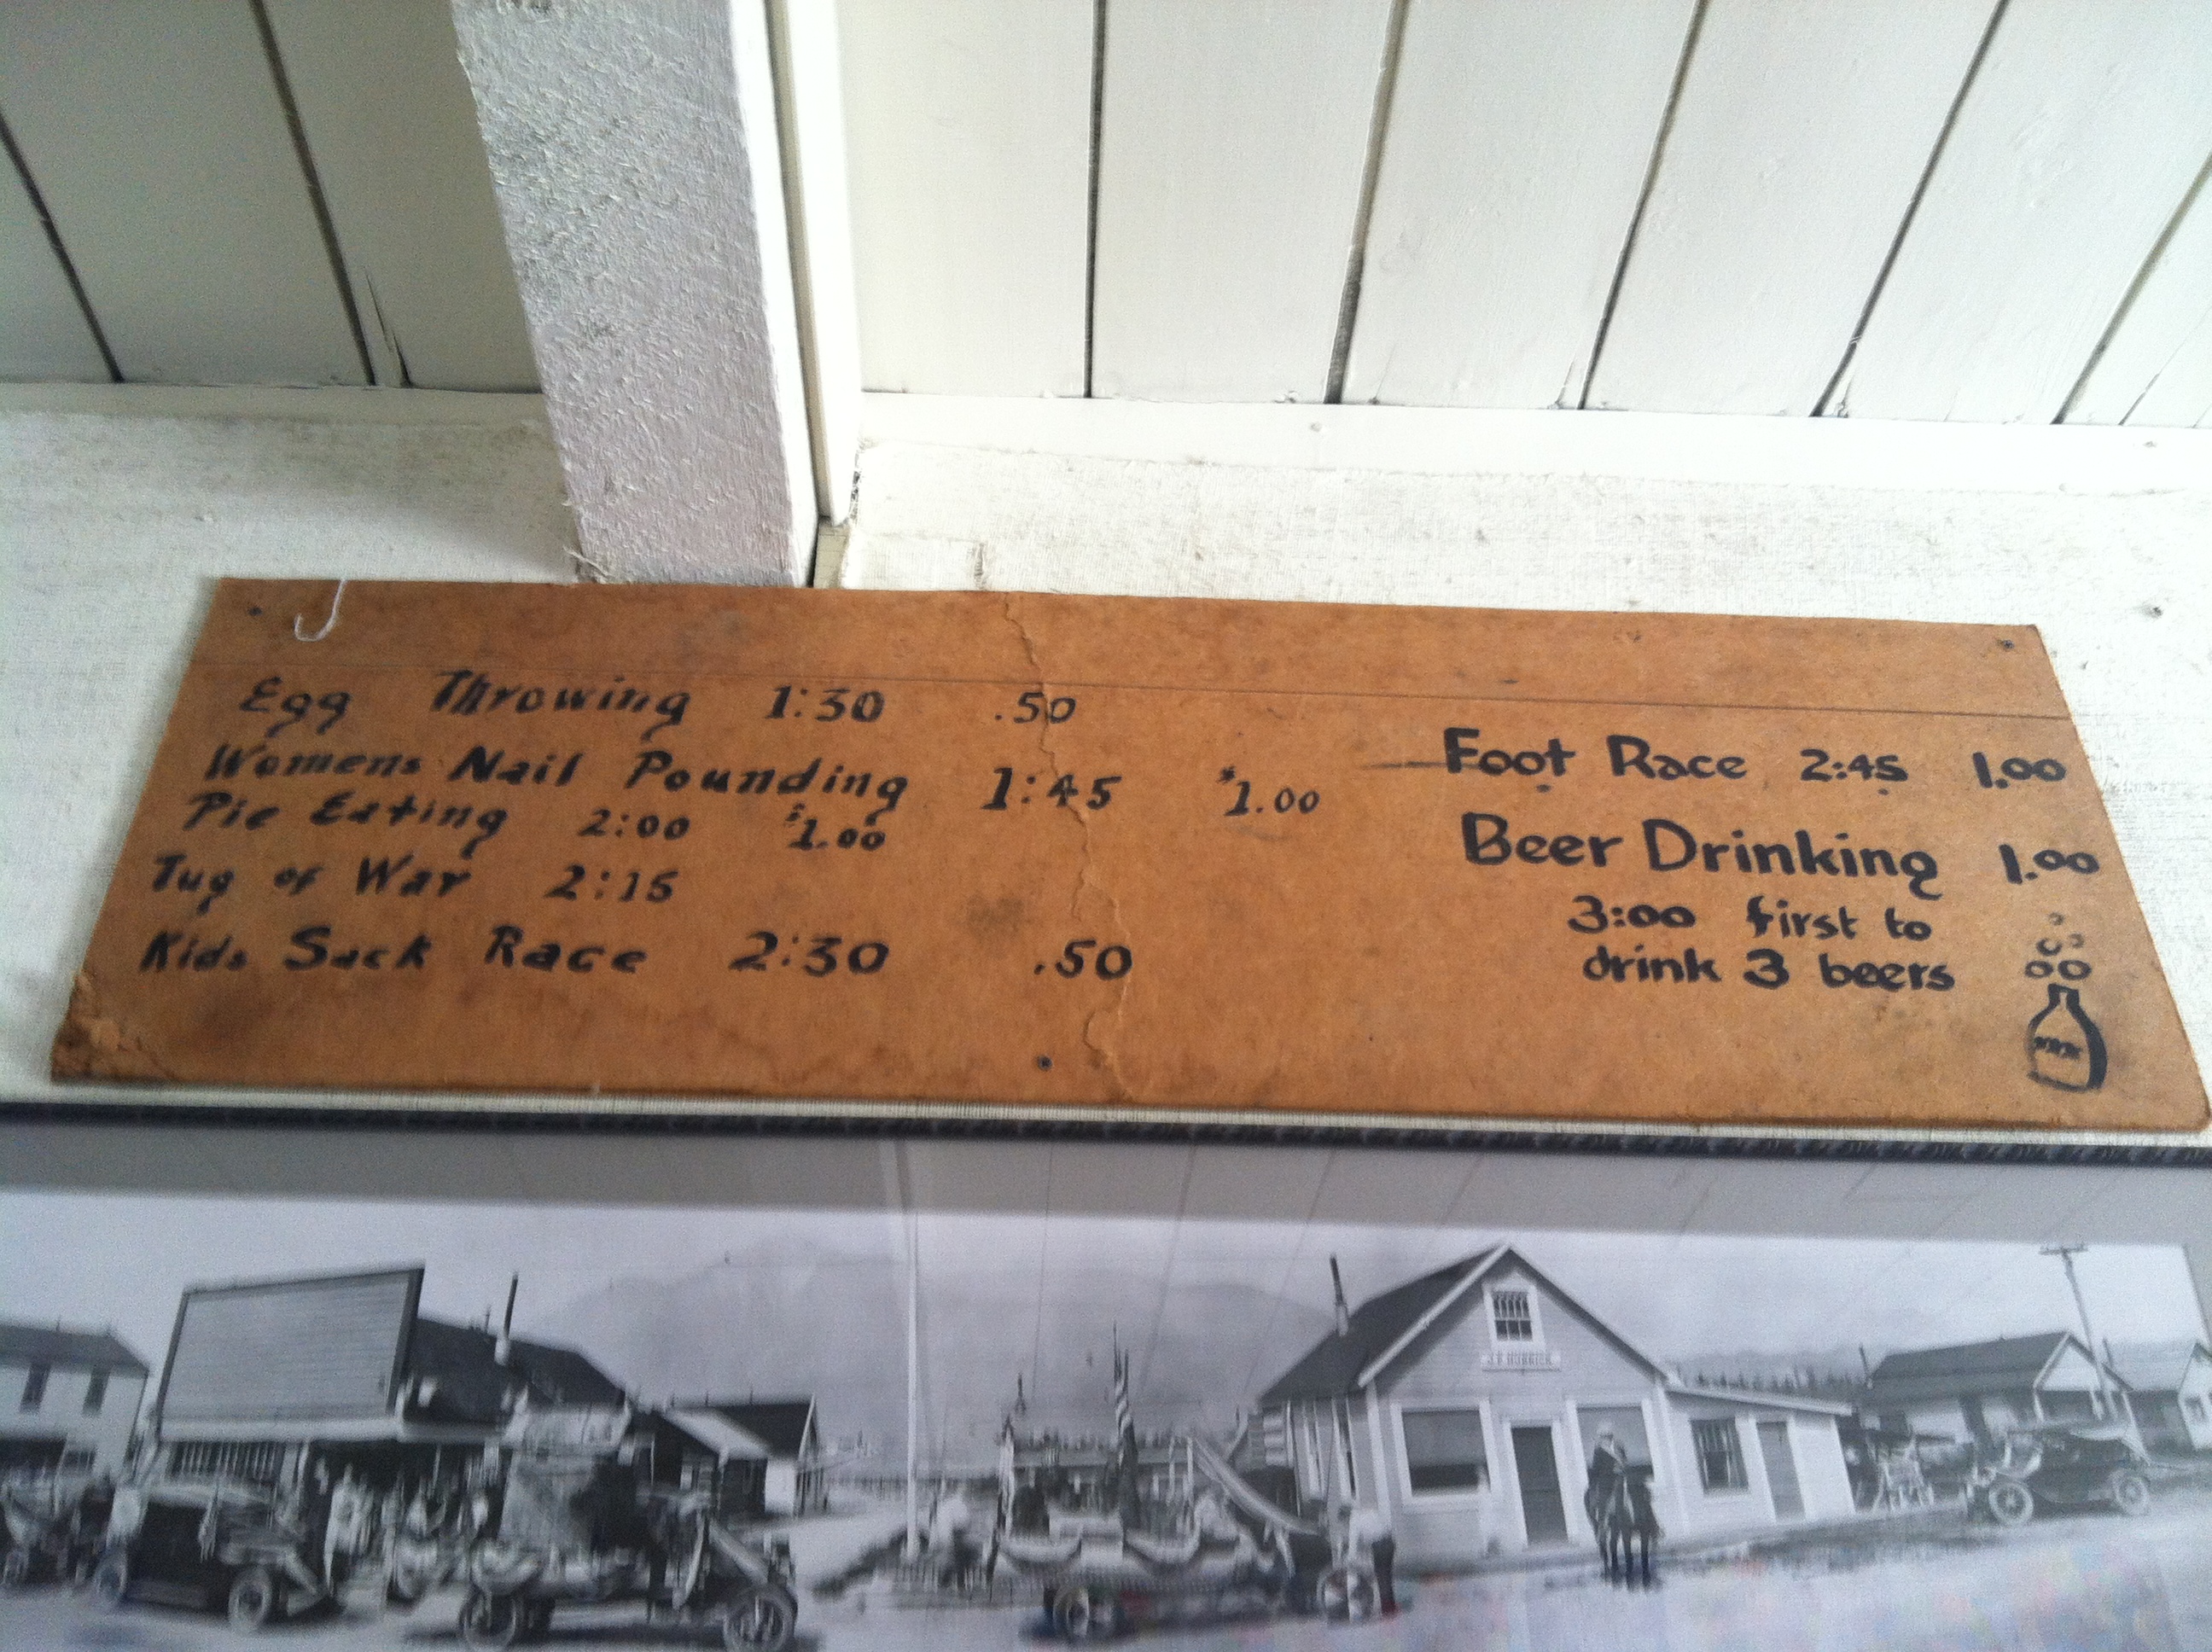 Egg Throwing 1:30 .50
Womens Nail Pounding 1:45 $1.00
Pie Eating 2:00 $1.00
Tug of War 2:15
Kids Sack Race 2:30 .50
Foot Race 2:45 1.00
Beer Drinking 1.00
3:00 first to
drink 3 beers